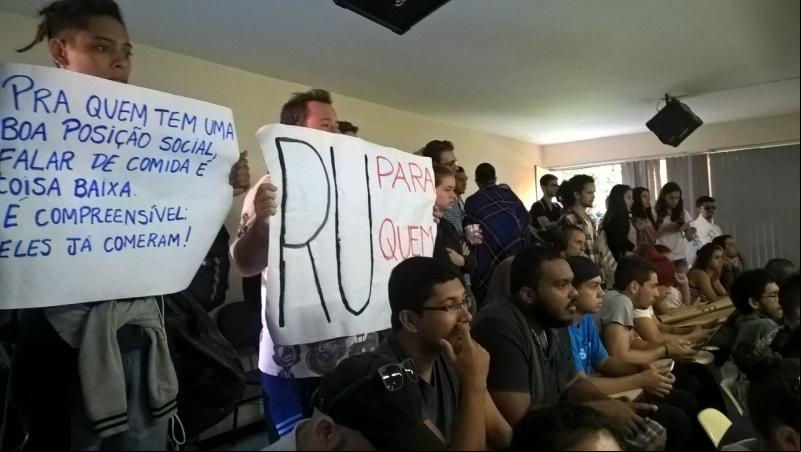 PRA QUEM TEM UMA
BOA POSIÇÃO SOCIAL,
FALAR DE COMIDA É
COISA BAIXA.
É COMPREENSÍVEL:
ELES JÁ COMERAM!
RU PARA
QUEM